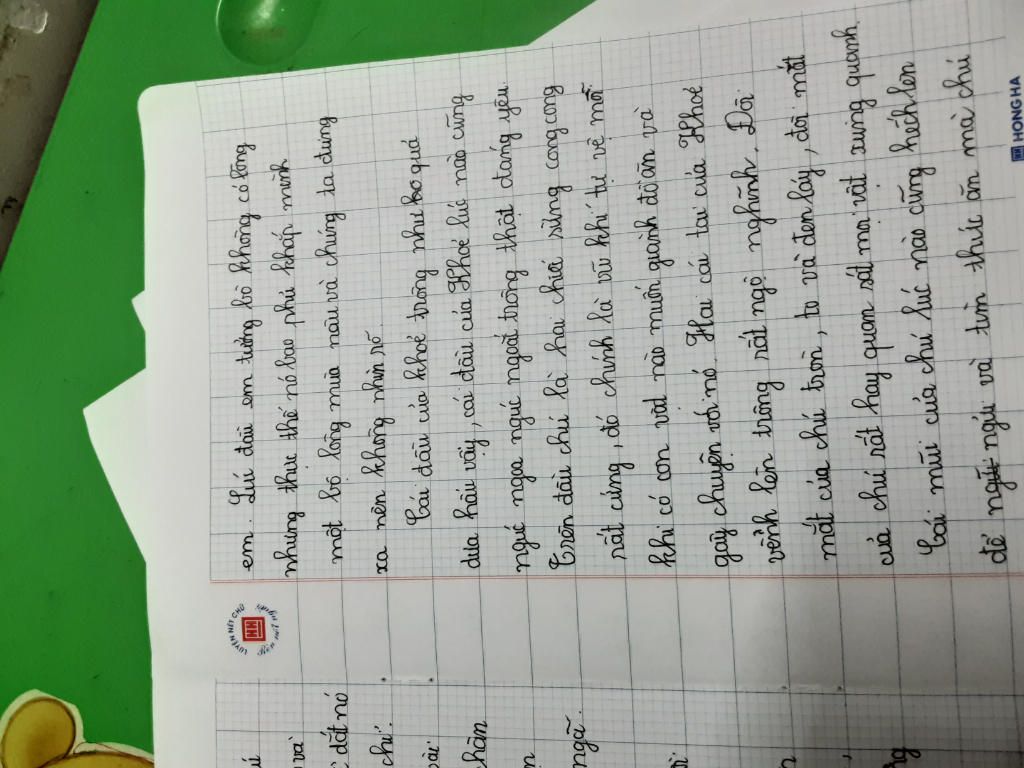 em. Lú đầu em tưởng bò không có lông
nhưng thực thế nó bao phủ khắp mình
một bộ lông mùa nâu và chúng ta đứng
xa nên không nhìn rõ.
Cái đầu của khoẻ trông như bo quả
dưa hấu vậy, cái đầu của Khoẻ lúc nào cũng
ngúc ngoa ngúc ngoắt trông thật đáng yêu.
Trên đầu chú là hai chiếc sừng cong cong
rất cứng, đó chính là vũ khí tự vệ mỗi
khi có con vật nào muốn giành đồ ăn và
gây chuyện với nó. Hai cái tai của Khoẻ
vểnh lên trông rất ngộ nghĩnh. Đôi
mắt của chú tròn, to và đen láy, đôi mắt
của chú rất hay quan sát mọi vật xung quanh.
Cái mũi của chú lúc nào cũng hếch lên
để ngửi và tìm thức ăn mà chú
LUYỆN NÉT CHỮ
HH
HONG HA
và
dắt nó
chú.
chân
ngã.